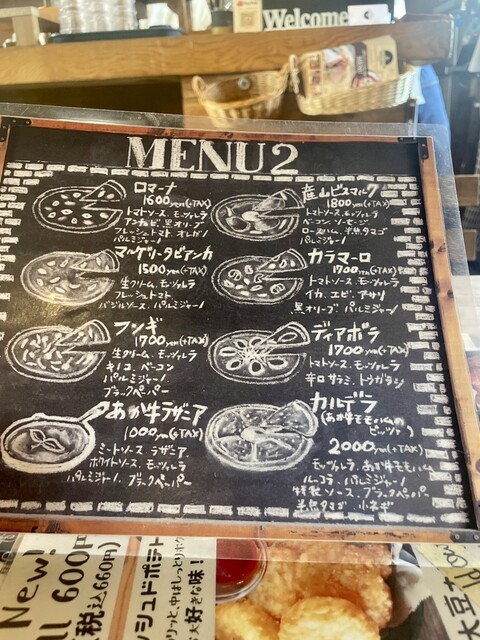 Welcome
MENU 2
ロマーナ
1600yen(+TAX)
トマトソース、モッツァレラ
アンチョビ、黒オリーブ
フレッシュトマト オレガノ
パルミジャーノ
産山ビスマルク
1800yen(+TAX)
トマトソース、モッツァレラ
ベーコン、ソーセージ
ロースハム、半熟タマゴ
パルミジャーノ
マルゲリータビアンカ
1500yen(+TAX)
生クリーム、モッツァレラ
フレッシュトマト
バジルソース、パルミジャーノ
カラマーロ
1700yen(+TAX)
トマトソース モッツァレラ
イカ、エビ、アサリ
黒オリーブ パルミジャーノ
フンギ
1700yen(+TAX)
生クリーム、モッツァレラ
キノコ、ベーコン
パルミジャーノ
ブラックペパー
ディアボラ
1700yen(+TAX)
トマトソース、モッツァレラ
辛口サラミ、トウガラシ
あか牛ラザニア
1000yen(+TAX)
ミートソース ラザニア
ホワイトソース、モッツァレラ
パルミジャーノ、ブラックペーパー
カルデラ
(あか牛モモハムの
ピッツァ)
2000yen(+TAX)
モッツァレラ、あか牛モモハム
ルーコラ、パルミジャーノ
特製ソース、ブラックペッパー
半熟タマゴ 小ネギ
New!
600円
税込660円)
シュドポテト
リッと、中はしっとりホク
大好きな味!
大豆